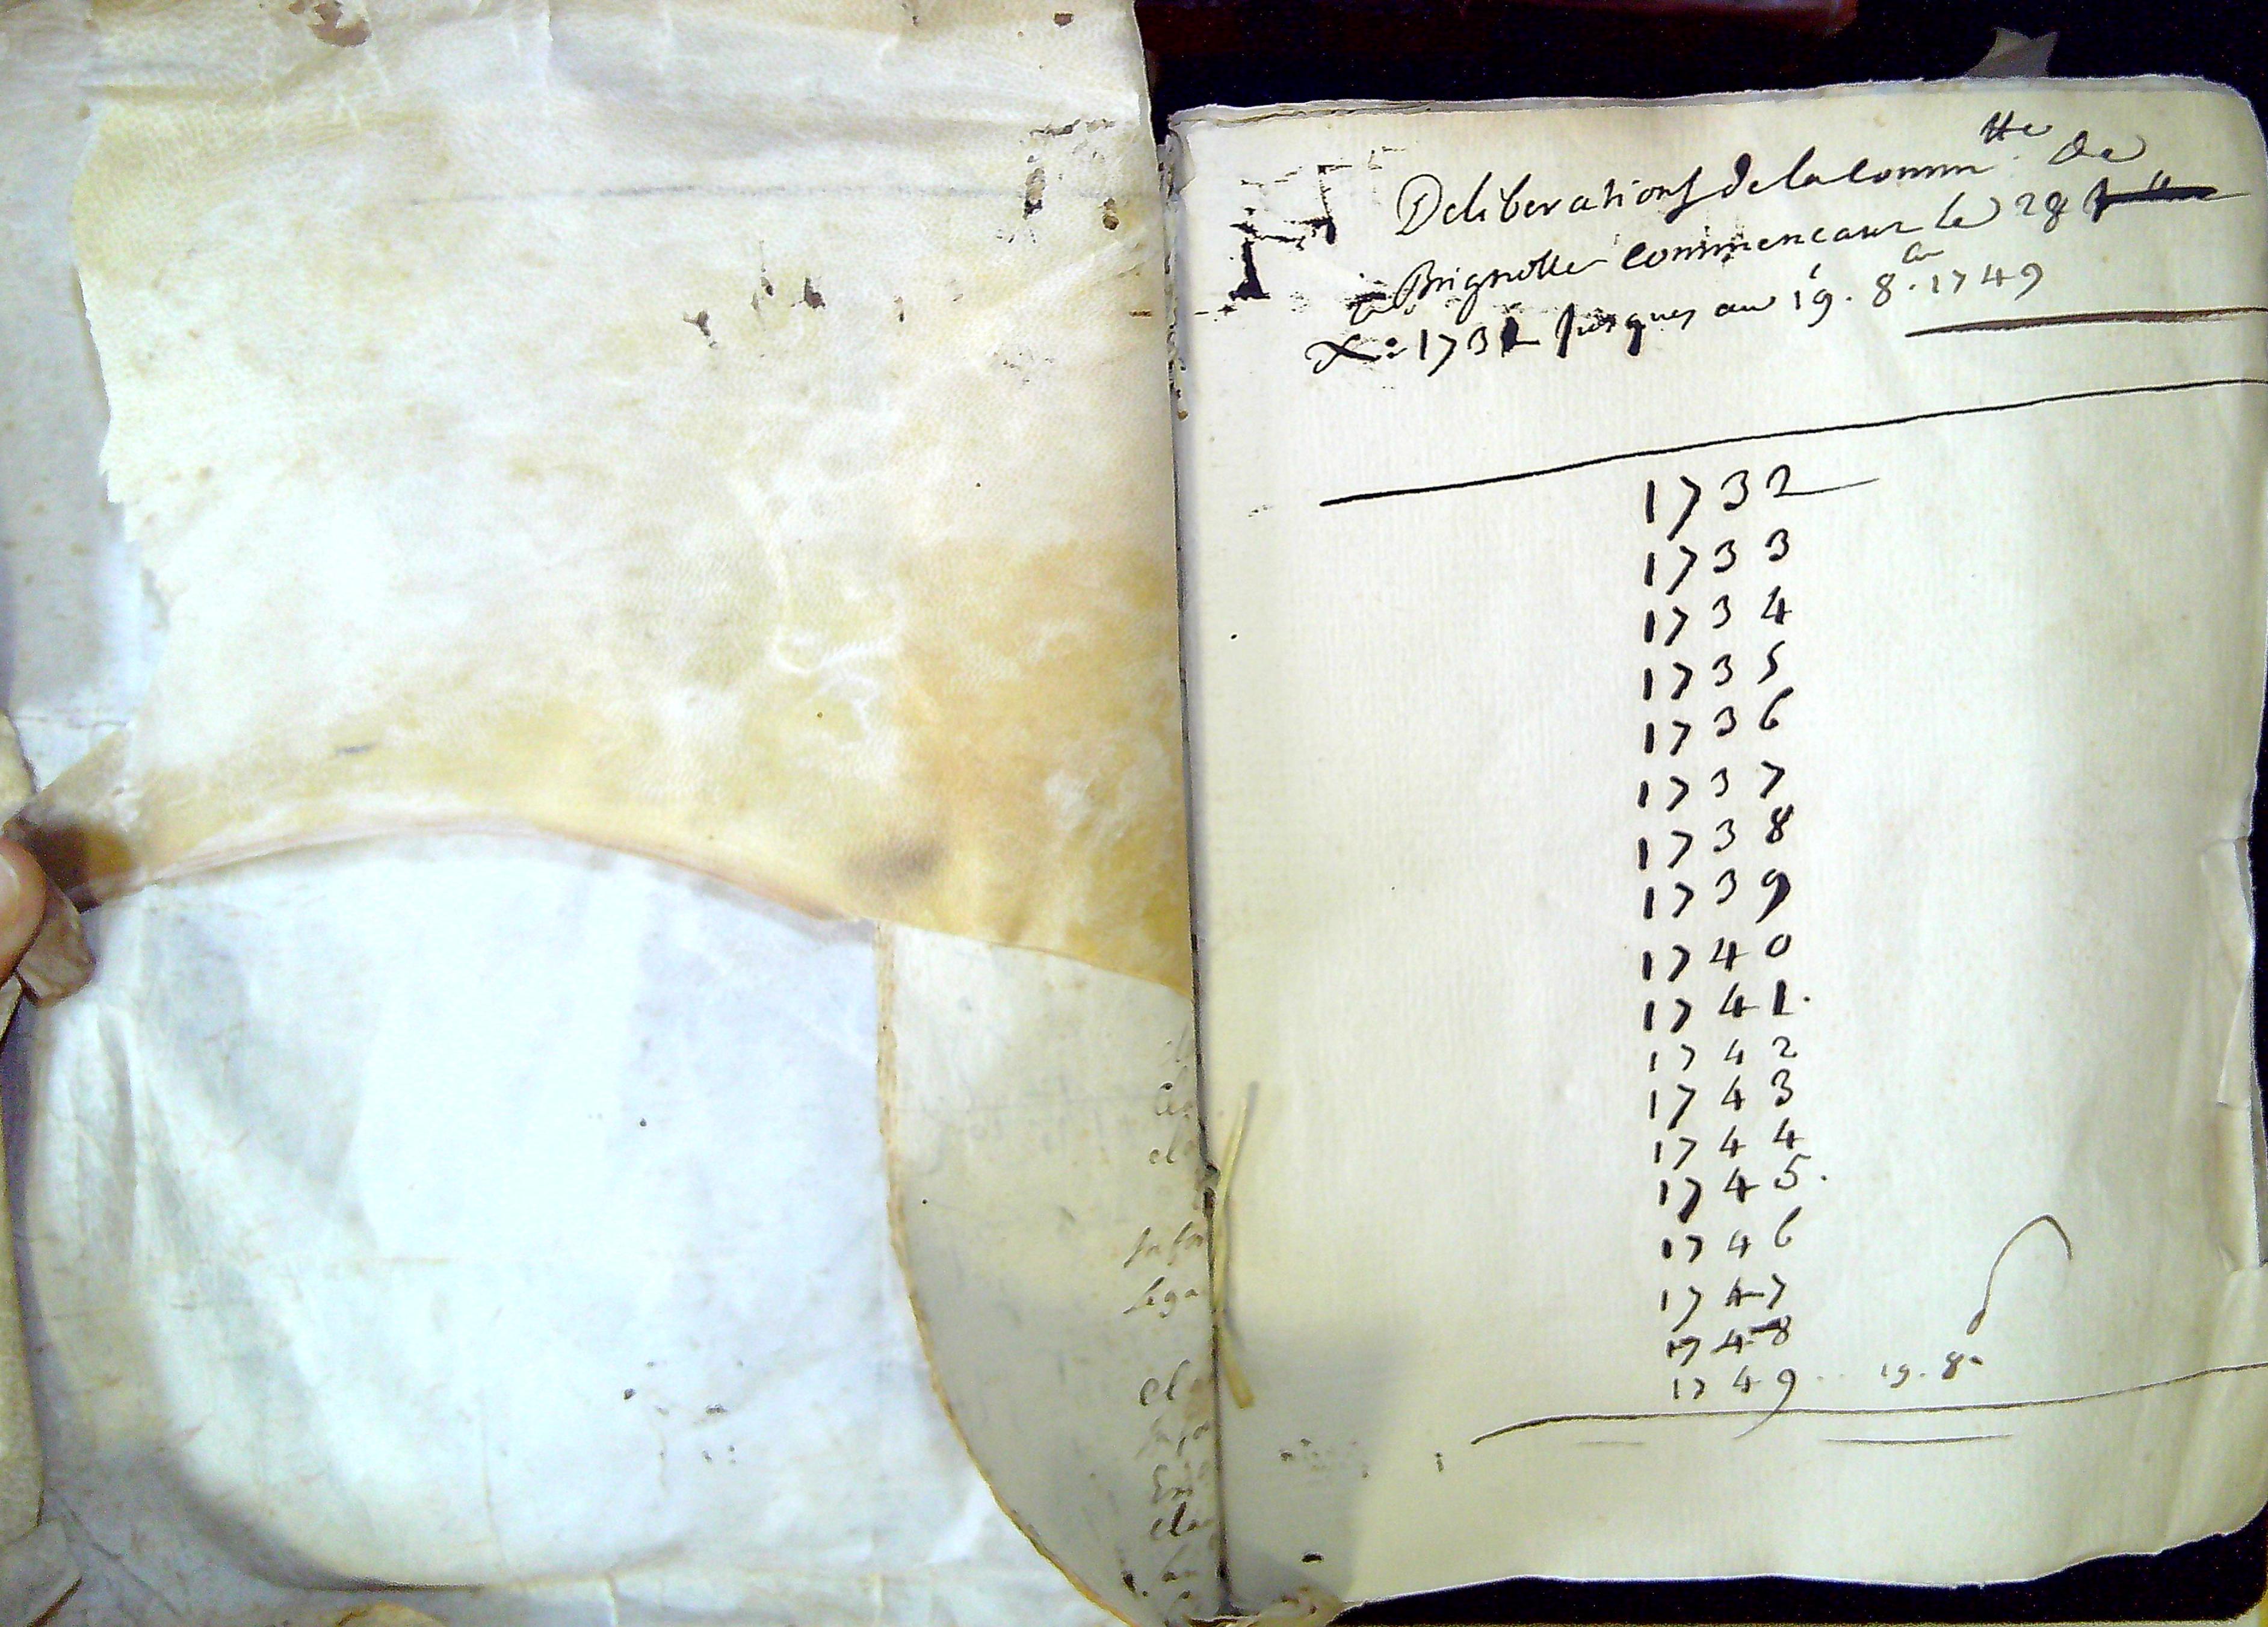 Deliberations de la Comm.tte de
Brignolle commencant le 28
X: 1731 jusques au 19. 8.bre 1749
1732
1733
1734
1735
1736
1737
1738
1739
1740
1741.
1742
1743
1744
1745.
1746
1747
1748
1749.. 19. 8.